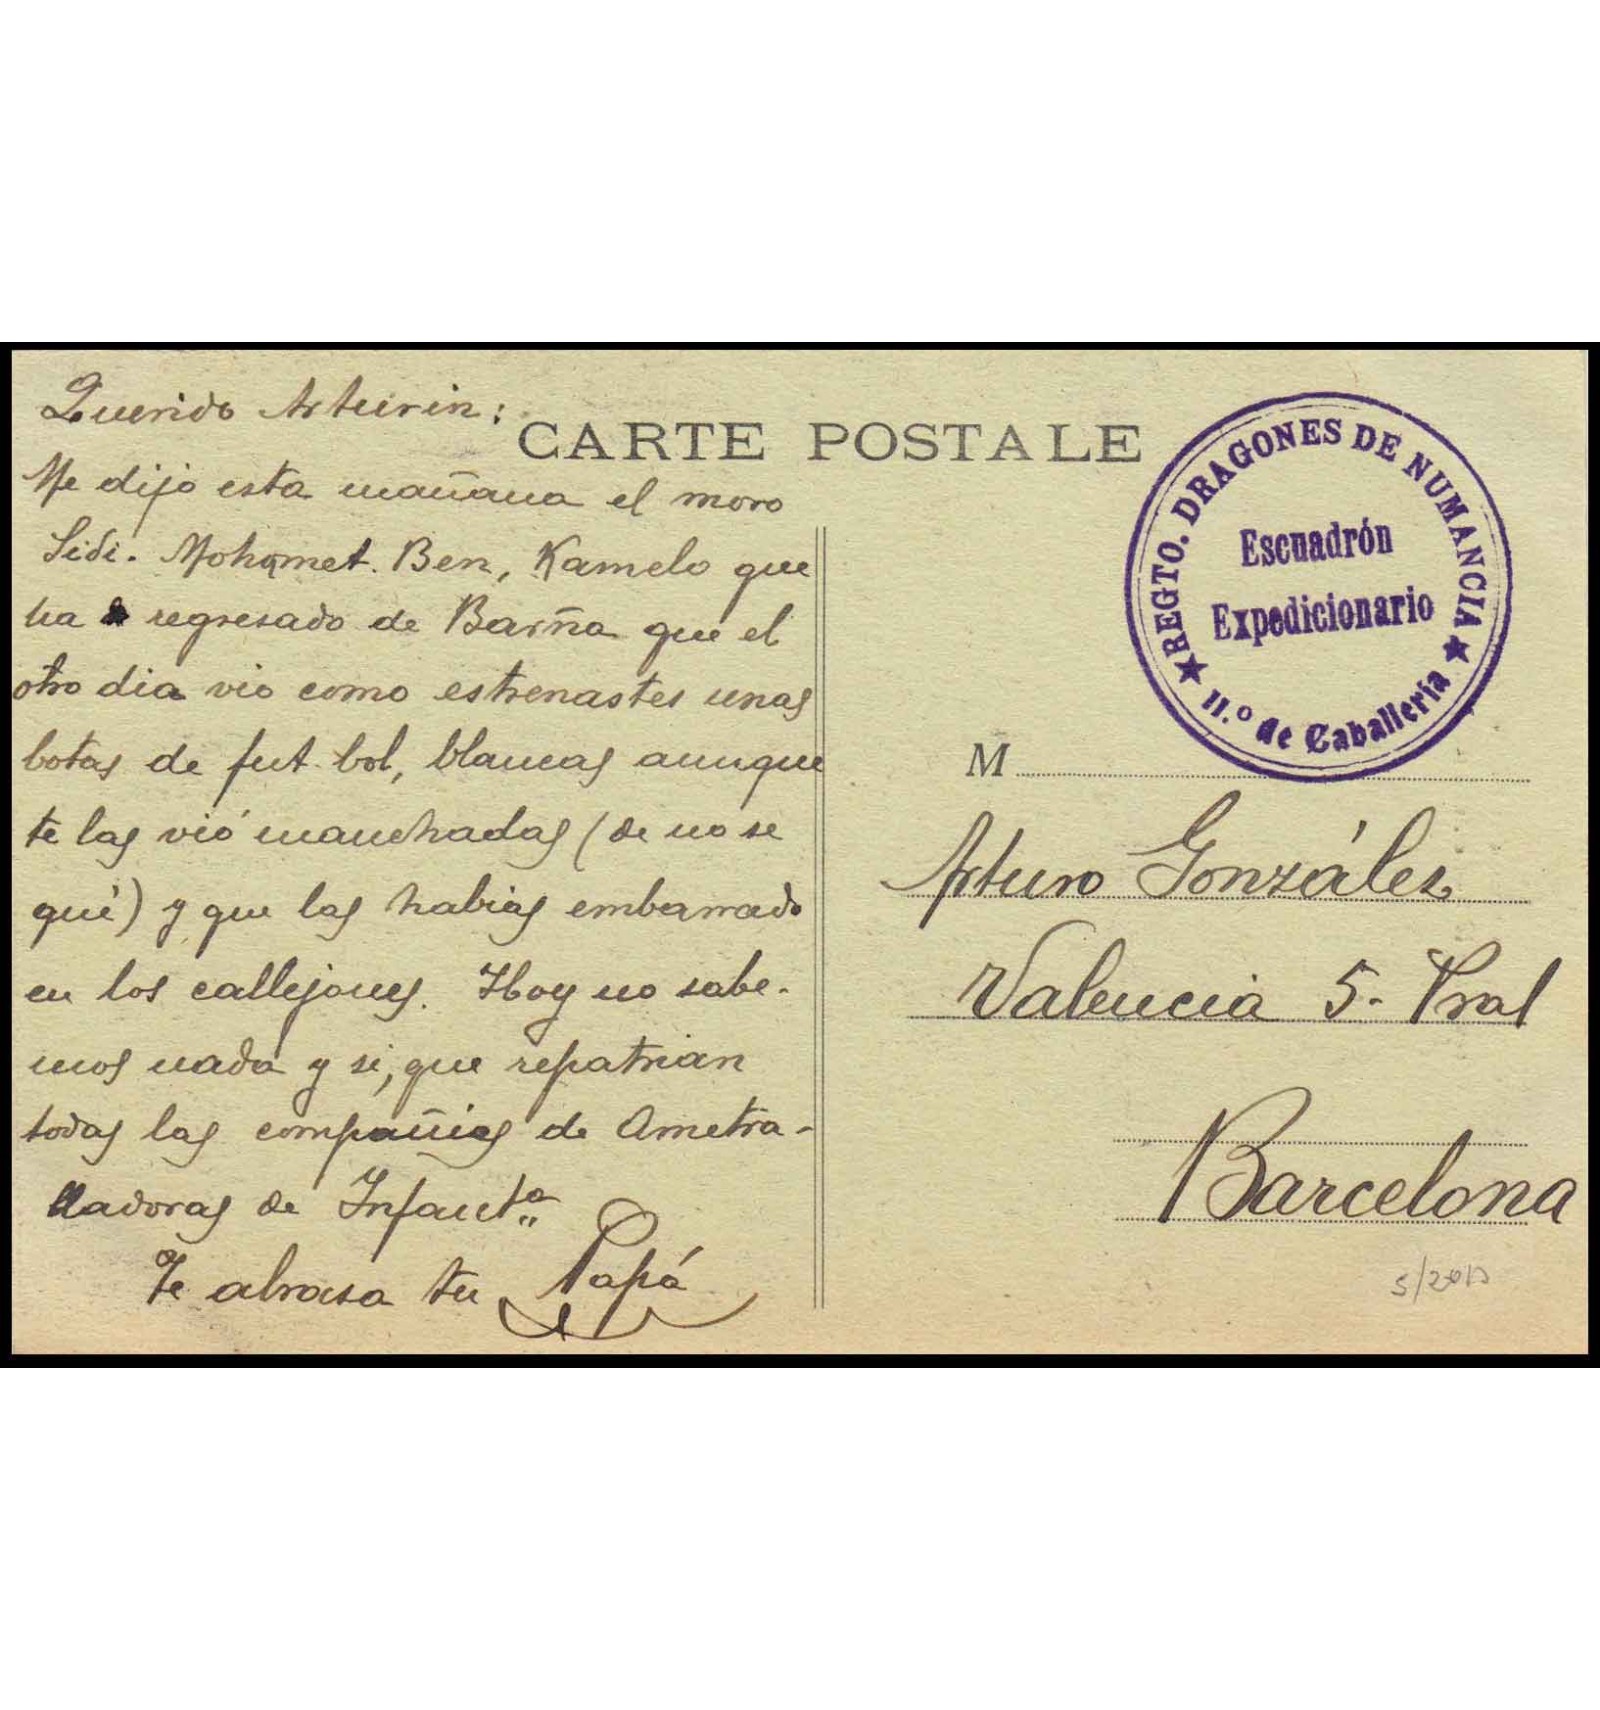 Querido Arturin:
CARTE POSTALE
Me dijo esta mañana el moro
Sidi. Mohamet. Ben, Kamelo que
ha regresado de Barña que el
otro dia vio como estrenastes unas
botas de fut bol, blancas aunque
te las vió manchadas (de no se
qué) y que las habias embarrado
en los callejones. Hoy no sabe-
mos nada y si, que repatrian
todas las compañias de Ametra-
lladoras de Infantª
Te abrasa tu Papá
REGTO. DRAGONES DE NUMANCIA
Escuadrón
Expedicionario
11.º de Caballería
M
Arturo Gonzáles
Valencia 5- Pral
Barcelona